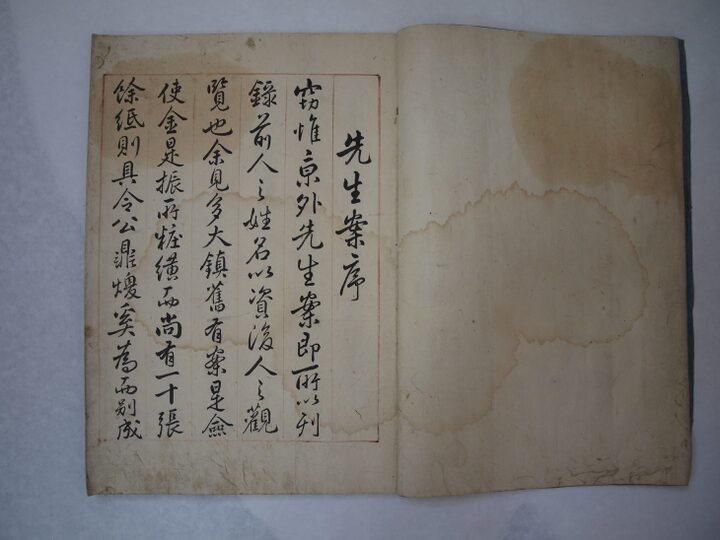 先生案序
窃惟京外先生案即所以刊
錄前人之姓名以資後人之觀
覽也余見多大鎮舊有案是僉
使金是振所粧䌙而尚有一十張
餘紙則具令公鼎爕奚爲而别成